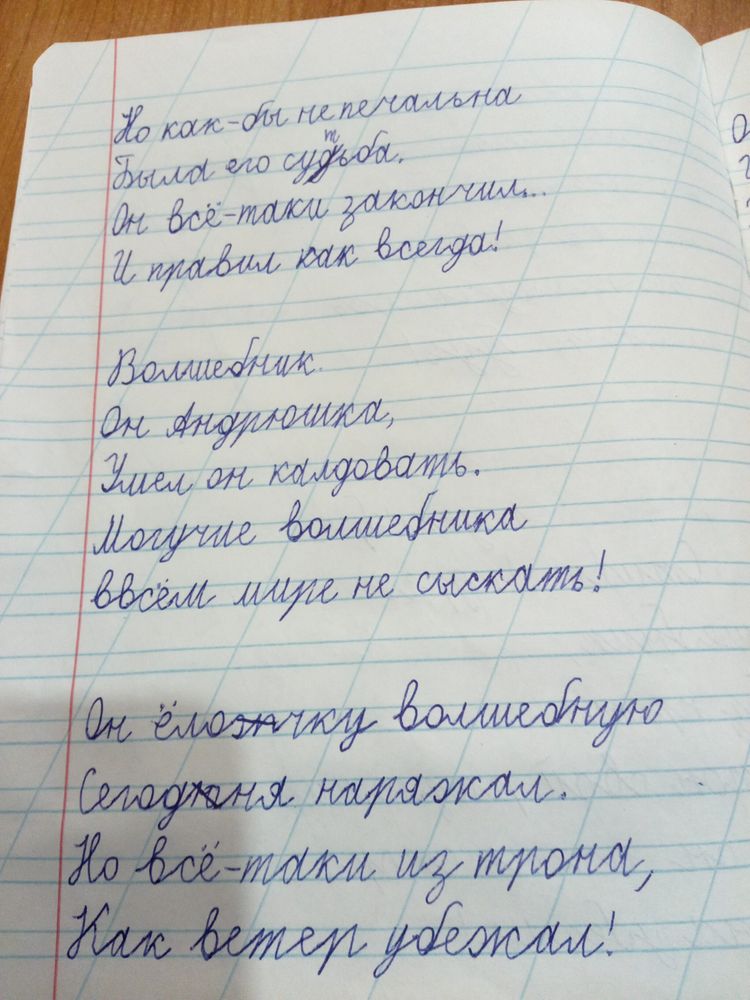 Но как-бы не печальна
Была его сутьба.
Он всё-таки закончил...
И правил как всегда!
Волшебник.
Он Андрюшка,
Умел он калдовать.
Могучие волшебника
ввсём мире не сыскать!
Он ёлочку волшебную
Сегодня наряжал.
Но всё-таки из трона,
Как ветер убежал!